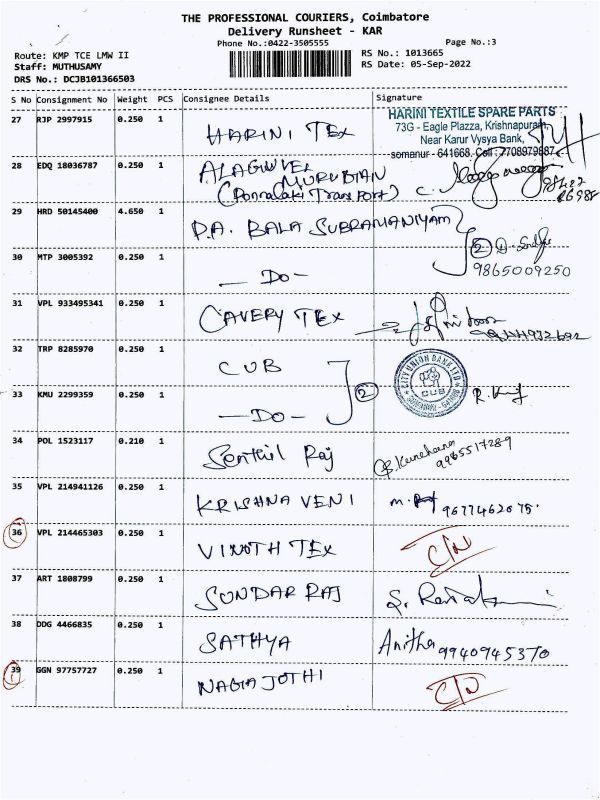 THE PROFESSIONAL COURIERS, Coimbatore
Delivery Runsheet - KAR
Phone No.:0422-3505555
Page No.:3
Route: KMP TCE LMW II
RS No.: 1013665
Staff: MUTHUSAMY
RS Date: 05-Sep-2022
DRS No.: DCJB101366503
S No Consignment No Weight PCS Consignee Details Signature
27 RJP 2997915 0.250 1 HARINI TEX
HARINI TEXTILE SPARE PARTS
73G - Eagle Plazza, Krishnapuram,
Near Karur Vysya Bank,
somanur - 641668. Cell: 7708979887
28 EDQ 18036787 0.250 1 ALAGUVEL
MURUBIAN
(Ponnalaki Transport)
29 HRD 50145400 4.650 1 P.A. BALA SUBRAMANIYAM
30 MTP 3005392 0.250 1 — Do — 2
9865009250
31 VPL 933495341 0.250 1 CAVERY TEX
32 TRP 8285970 0.250 1 CUB
CITY UNION BANK LTD
CUB
33 KMU 2299359 0.250 1 — Do — 2
34 POL 1523117 0.210 1 Senthil Raj
9965517289
35 VPL 214941126 0.250 1 KRISHNA VENI 9677462075.
36 VPL 214465303 0.250 1 VINOTH TEX C/N
37 ART 1808799 0.250 1 SUNDAR RAJ
38 DDG 4466835 0.250 1 SATHYA Anitha 9940945370
39 GGN 97757727 0.250 1 NAGAJOTHI C/N